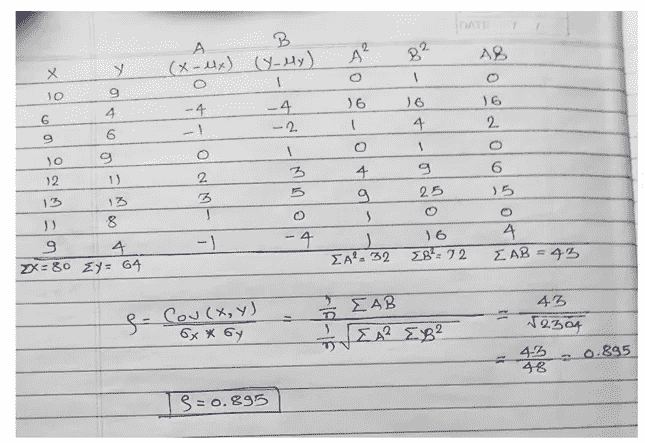 DATE / /
A B
X Y (X-μx) (Y-μx) A² B² AB
10 9 0 1 0 1 0
6 4 -4 -4 16 16 16
9 6 -1 -2 1 4 2
10 9 0 1 0 1 0
12 11 2 3 4 9 6
13 13 3 5 9 25 15
11 8 1 0 1 0 0
9 4 -1 -4 1 16 4
ΣX=80 ΣY=64 ΣA²=32 ΣB²=72 ΣAB=43
ρ = Cov(X,Y) / σx * σy = 1/n ΣAB / 1/n √ΣA² ΣB² = 43 / √2304
= 43/48 = 0.895
ρ = 0.895